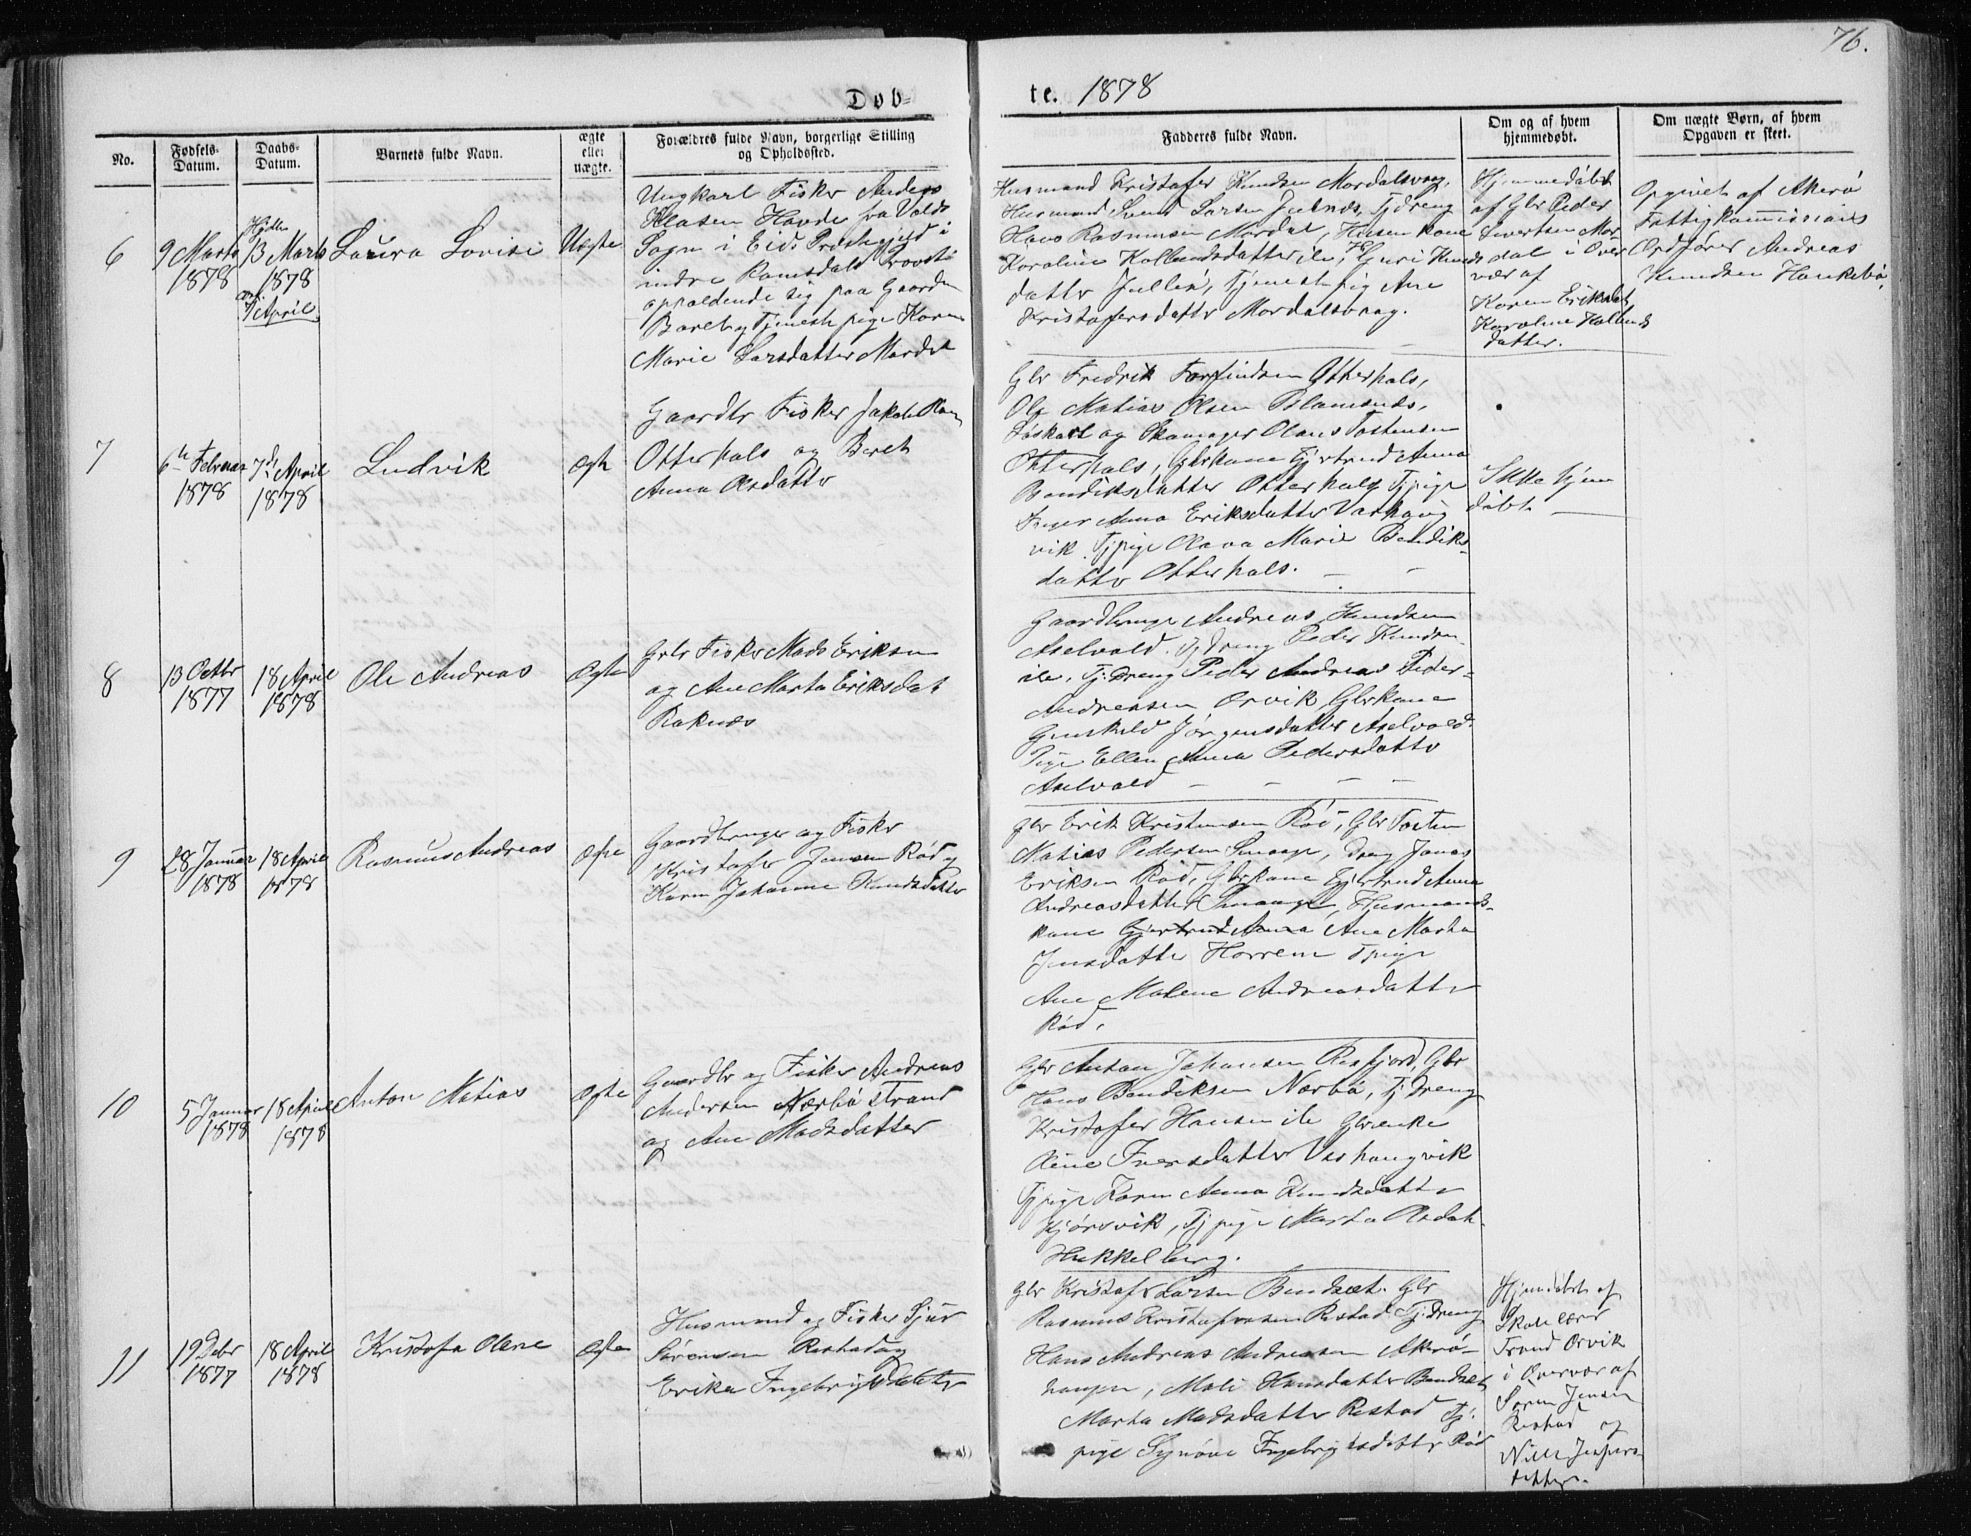 76.
Døb=
te. 1878
No.
Fødsels-
Datum.
Daabs-
Datum.
Barnets fulde Navn.
ægte
eller
uægte.
Forældres fulde Navn, borgerlige Stilling
og Opholdssted.
Fadderes fulde Navn.
Om og af hvem
hjemmedøbt.
Om uægte Børn, af hvem
Opgaven er skeet.
6
9 Marts
1878
Hjdbt
13 Marts
1878
7 April
Laura Lovise
Uægte
Ungkarl Fisker Anders
Klasen Hovde fra Volds
Sogn i Eids Præstegjeld i
indre Romsdals Provsti
oppaldende sig paa Gaarden
og Tjenestepige Karen
Marie Larsdatter Mordal
Husmand Kristofer Knudsen Mordalsvaag,
Husmand Svend Larsen Julnæs, Tjdreng
Hans Rasmusen Mordal, Husm kone
Karoline Kollundsdatter ile, Guri Knuds
datter Jullen, Tjenestepig Ane
Kristofersdatter Mordalsvaag.
Hjemmedöbt
af Gbr Peder
Sivertsen Mor
dal i Over
vær af
Karen Eriksdat
Karoline Kollunds
datter.
Opgivet af Akerø
Fattigkommissions
Ordfører Andreas
Knudsen Haukebø,
7
6te Februar
1878
7de April
1878
Ludvik
ægte
Gaardbr Fisker Jakob
Otterhals og Beret
Anna Olsdatter
Gbr Fredrik Torfindsen Otterhals,
Ole Matias Olsen
Löskarl og Skomager Olaus Tostensen
Otterhals, Gbrkone Gjertrud Anna
Bendiksdatter Otterhals Tjpige
Inger Anna Eriksdatter Vashaug
vik Tjpige Olava Marie Bendiks-
datter Otterhals.
Ikke hjem
döbt
8
13 Octbr
1877
18 April
1878
Ole Andreas
Ægte
Gbr Fisker Mads Eriksen
og Ane Marta Eriksdat
Raknæs
Gaardbruger Andreas Knudsen
Aselvold. Tjdreng Peder Knudsen
ile, Tj.Dreng Peder Andreas Peder-
Andreasen Orvik Gbrkone
Gunhild Jørgensdatter Aselvold.
Pige Ellen Anna Pedersdatter
Aselvold
9
28 Januar
1878
18 April
1878
Rasmus Andreas
ægte
Gaardbruger og Fisker
Kristofer Jensen Rød og
Karen Johanne Knudsdatter
Gbr Erik Kristensen Rød, Gbr Tosten
Matias Pedersen Smaage, Dreng Jonas
Eriksen Rød, Gbrkone Gjertrud Anna
Andreasdatter Smaage, Husmands-
kone Gjertrud Anna Ane Marta
Jensdatter Horrem Tpige
Ane Malene Andreasdatter
Rød.
10
5 Januar
1878
18 April
1878
Anton Matias
Ægte
Gaardbr og Fisker Andreas
Andersen Nærbø Strand
og Ane Madsdatter
Gbr Anton Johansen Risfjord, Gbr
Hans Bendiksen Nærbø, Tj Dreng
Kristofer Hansen ile Gbrenke
Oline Iversdatter Vashaugvik
Tjpige Karen Anna Knudsdatter
Hjørsvik, Tj pige Marta Olsdat.
Hukkelberg.
11
19 Debr
1877
18 April
1878
Kristofa Olene
ægte
Husmand og Fisker Sjur
Sørensen Restad og
Erika Ingebrigtsdatter
Gbr Kristofer Larsen Bendsæt. Gbr
Rasmus Kristofersen Restad Tj.Dreng
Hans Andreas Andreasen Akerø-
haugen, Mali Hansdatter Bendsæt
Marta Madsdatter Restad Tj.
pige Synøve Ingebrigtsdatter Rød
Hjemdöbt af
Skolelærer
Trond Orvik
i Overvær af
Søren Jensen
Restad og
Nille Jespers
datter.